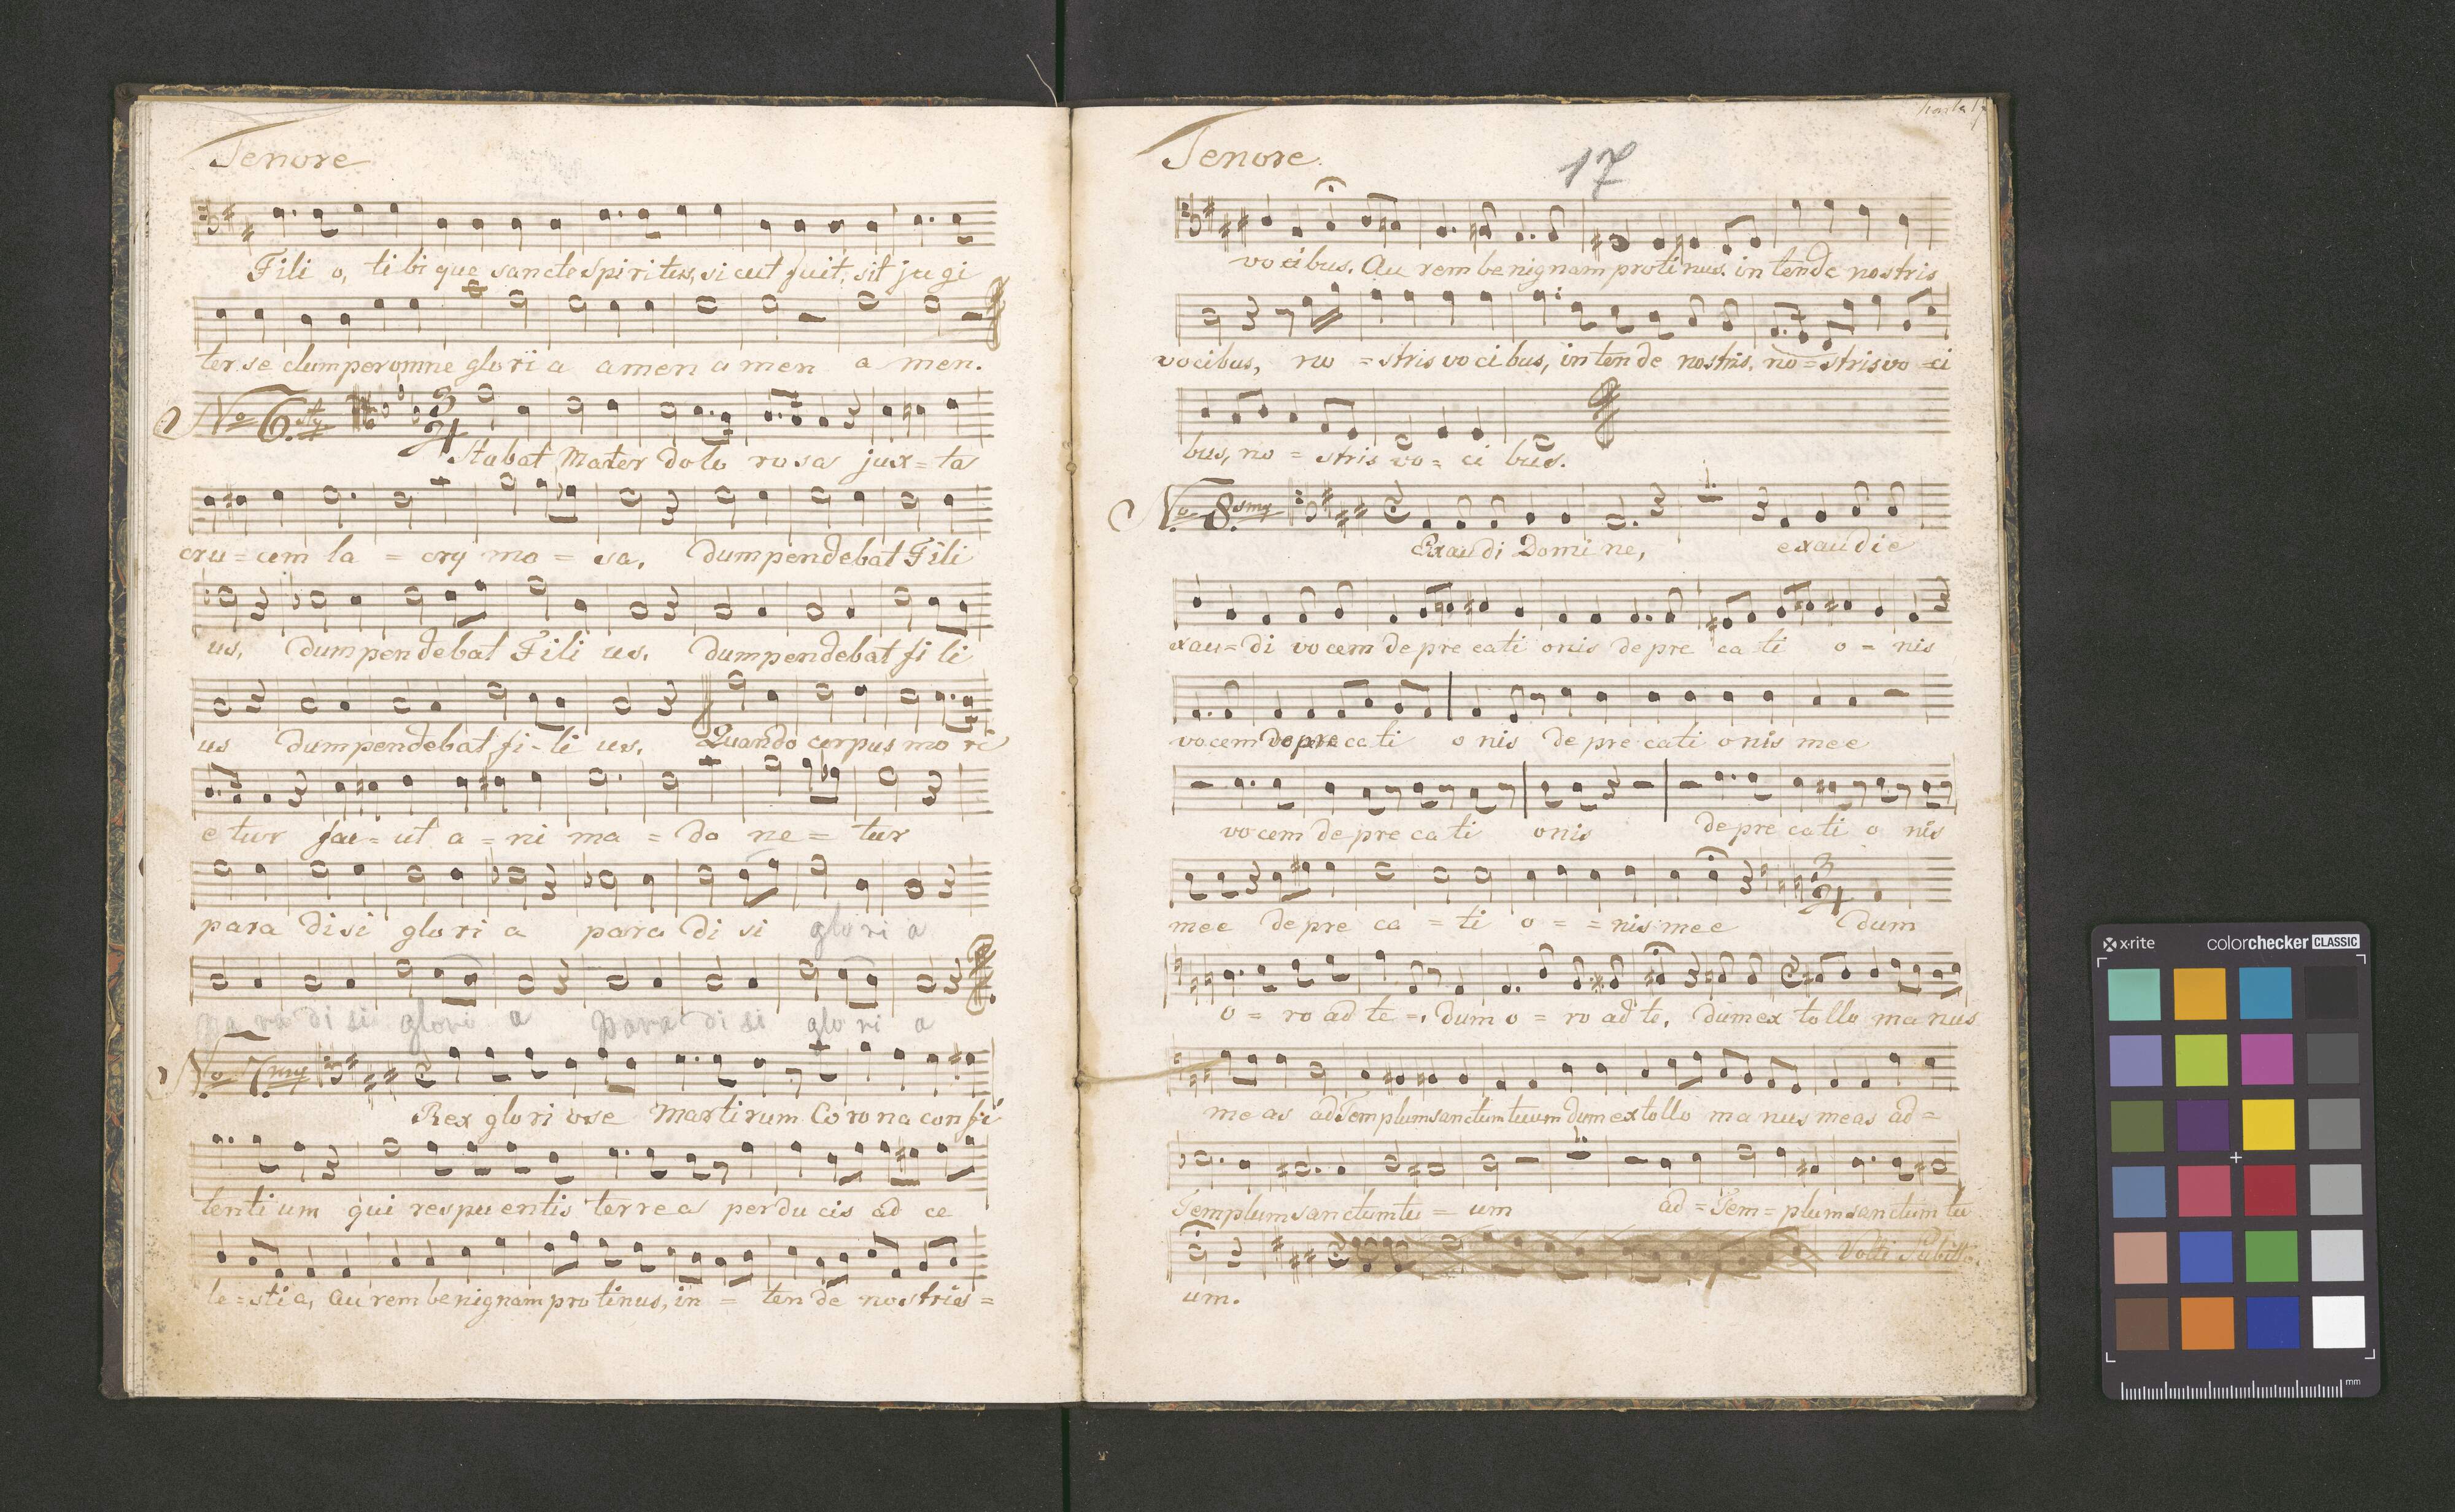 Tenore
Fili o, ti bi que sancte Spiritus, si cut fuit, sit ju gi
ter se clum per omne glori a amen a men a men.
No 6.sty
Stabat Mater dolo rosa jux = ta
cru = cem la = cry mo = sa, dum pendebat Fili
us, dum pendebat Fili us, dum pendebat fi li
us dum pendebat fi - li us, Quando corpus mo ri
e tur fac = ut a = ni ma = do ne = tur
para di si glo ri a para di si glo ri a
pa ra di si glori a para di si glo ri a
No 7my
Rex glo ri ose Martirum Co ro na con fi
tenti um qui respu entis terre a perdu cis ad ce
le = sti a, au rem be nignam pro tinus, in = ten de nostris =
Tenore.
17
vo cibus. Au rem be nignam protinus. in tende nostris
vocibus, no = stris vo ci bus, in ten de nostris, no = stris vo = ci
bus, no = stris vo = ci bus.
No 8.smy
Exau di Domi ne, exau di e
exau = di vo cem de pre cati onis de pre ca ti o = nis
vocem de pre ca ti o nis de pre cati o nis me e
vo cem de pre ca ti o nis de pre ca ti o nis
me e de pre ca = ti o = = nis me e dum
o = ro ad te =, dum o = ro ad te, dum ex tollo ma nus
me as ad Templum sanctum tuum dum extollo ma nus meas ad =
Templum sanctum tu = um ad = Tem = plum sanctum tu
Volti Subitto.
um.
x-rite
colorchecker CLASSIC
mm